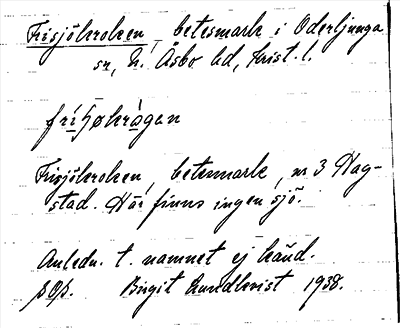 Frisjökroken, betesmark i Oderljunga
sn, N. Åsbo hd, Krist. l.
Frisjökroken betesmark, nr 3 Hag-
stad. Här finns ingen sjö.
Anledn. t. namnet ej känd.
Birgit Lundkvist 1938.